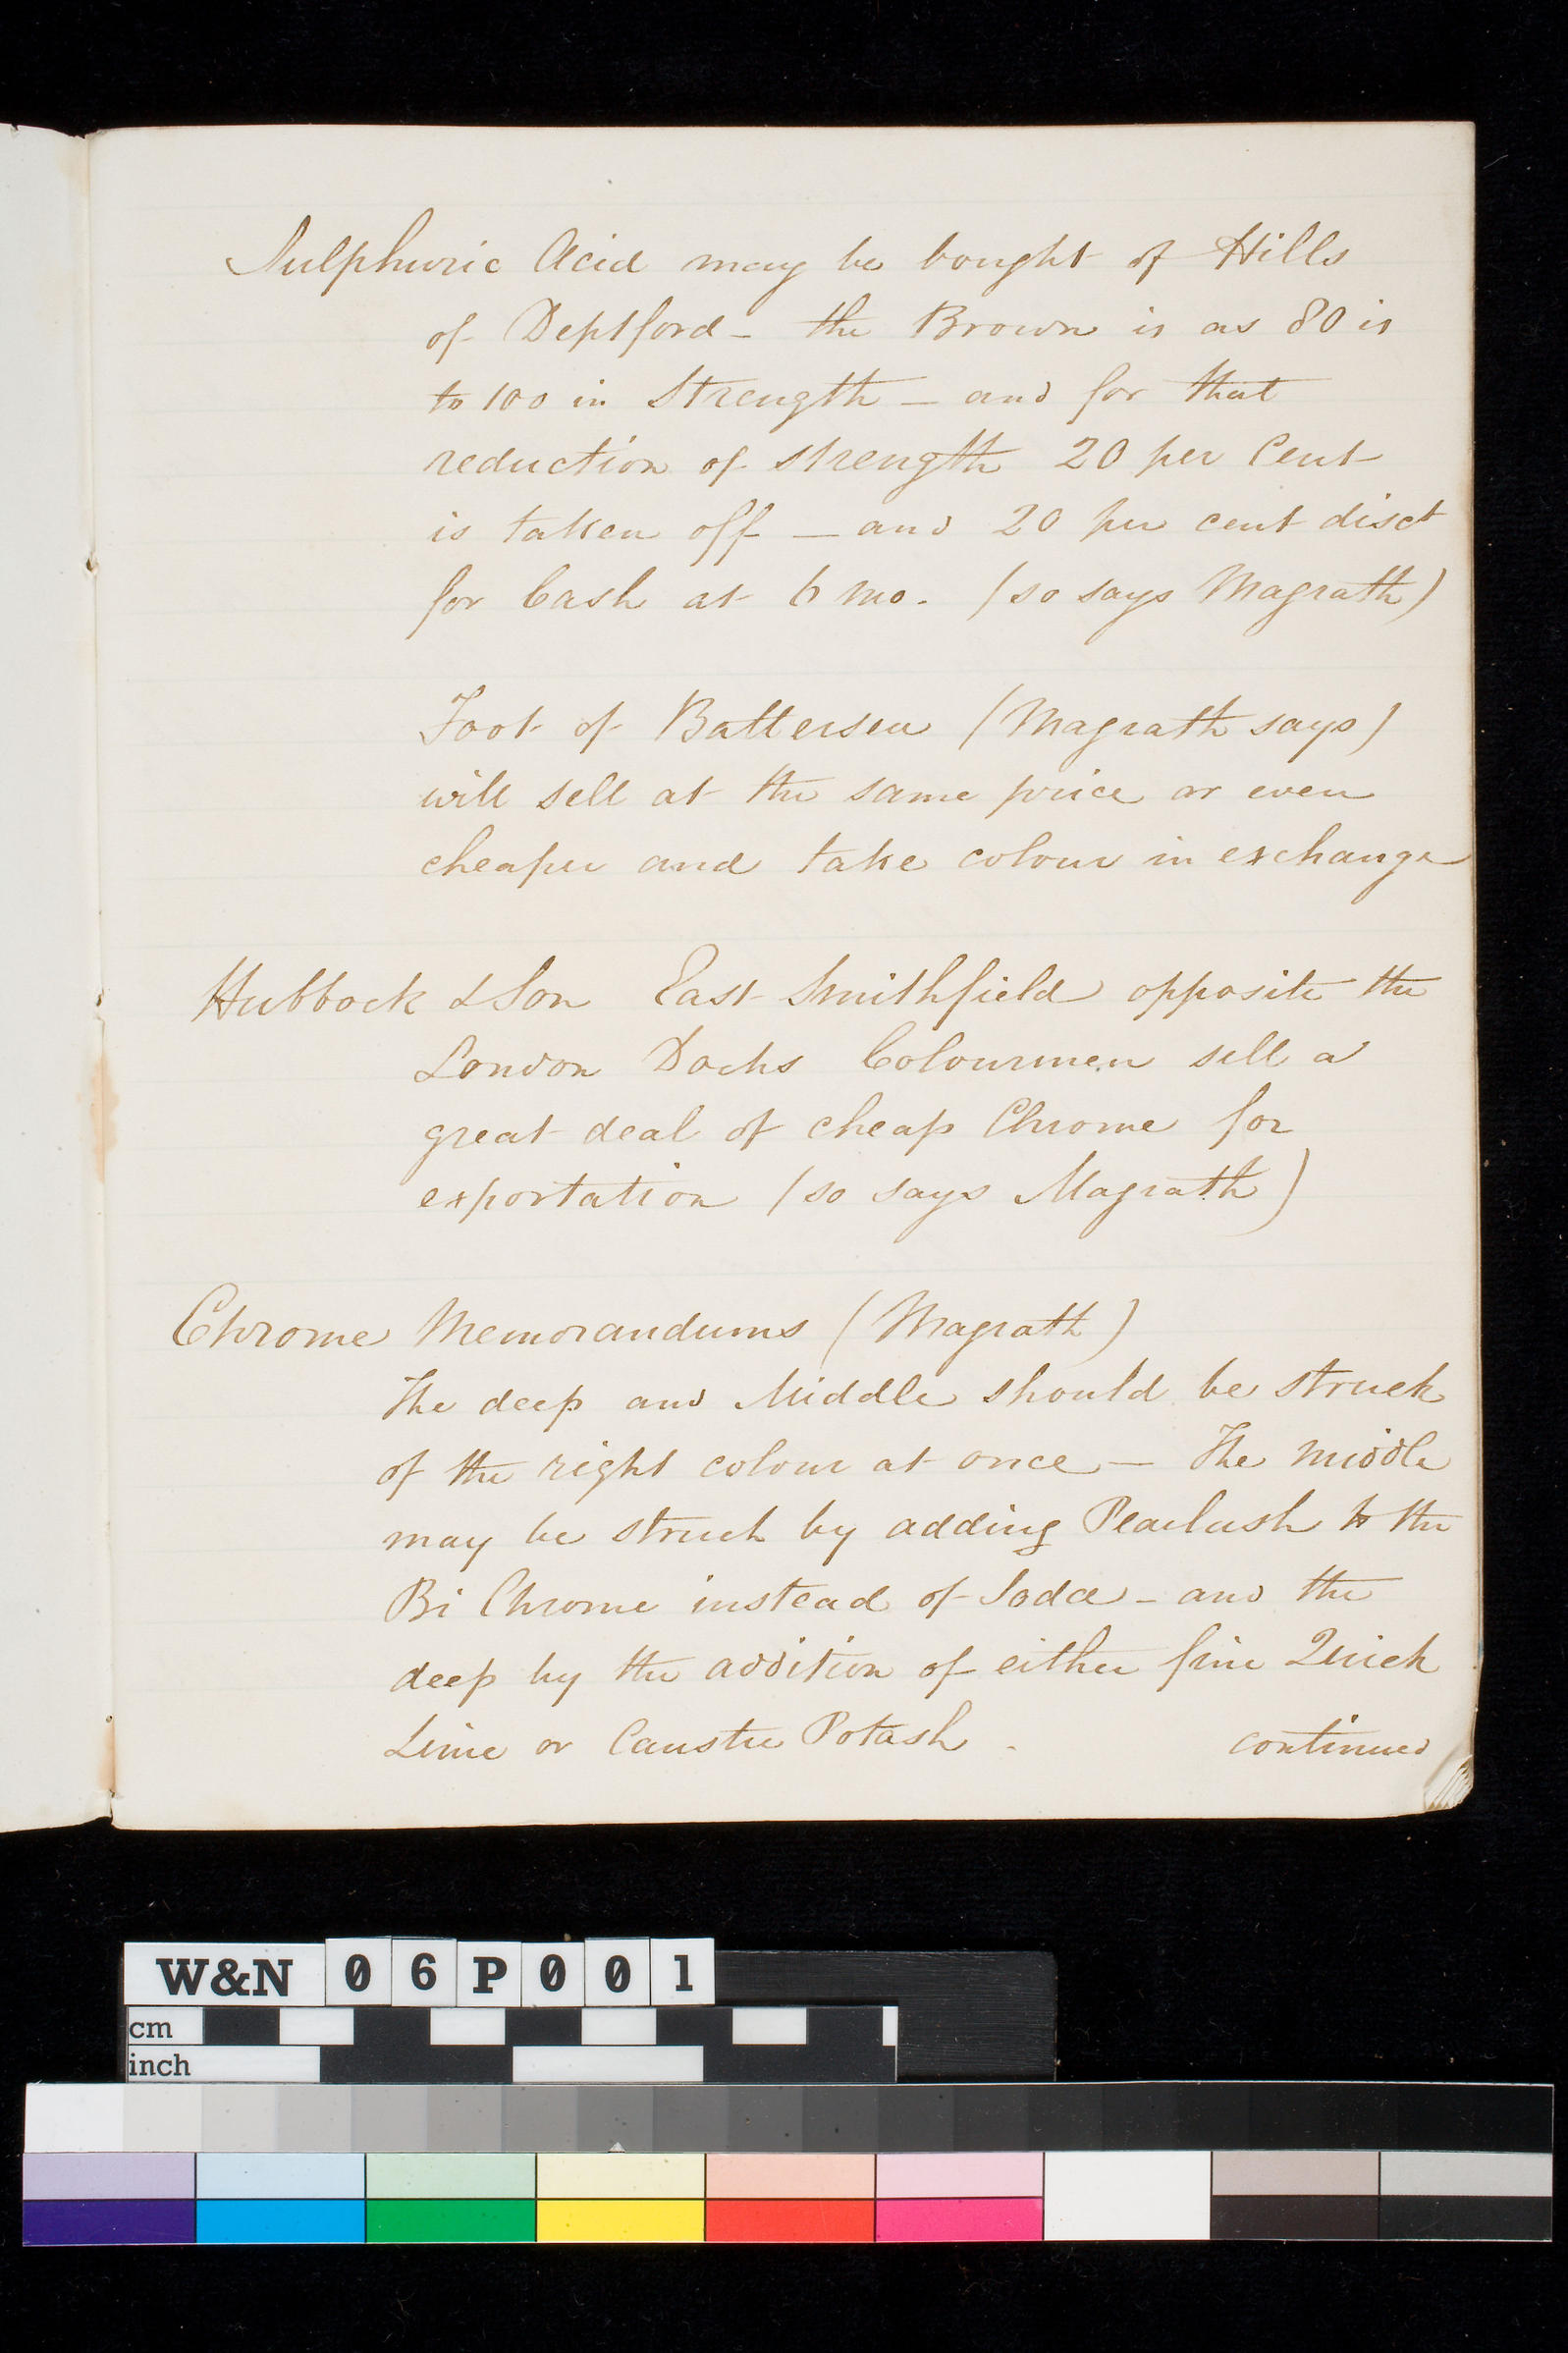 Sulphuric Acid may be bought of Hills
of Deptford - the Brown is as 80 is
to 100 in Strength - and for that
reduction of strength 20 per Cent
is taken off - and 20 per cent disct
for Cash at 6 mo. (so says Magrath)
Foot of Battersea (Magrath says)
will sell at the same price or even
cheaper and take colour in exchange
Hubbock & Son East Smithfield opposite the
London Docks Colourmen sell a
great deal of cheap Chrome for
exportation (so says Magrath)
Chrome Memorandums (Magrath)
The deep and Middle should be struck
of the right colour at once - The middle
may be struck by adding Pearlash to the
Bi Chrome instead of Soda - and the
deep by the addition of either fine Quick
Lime or Caustic Potash -
continued
W&N 06P001
cm
inch